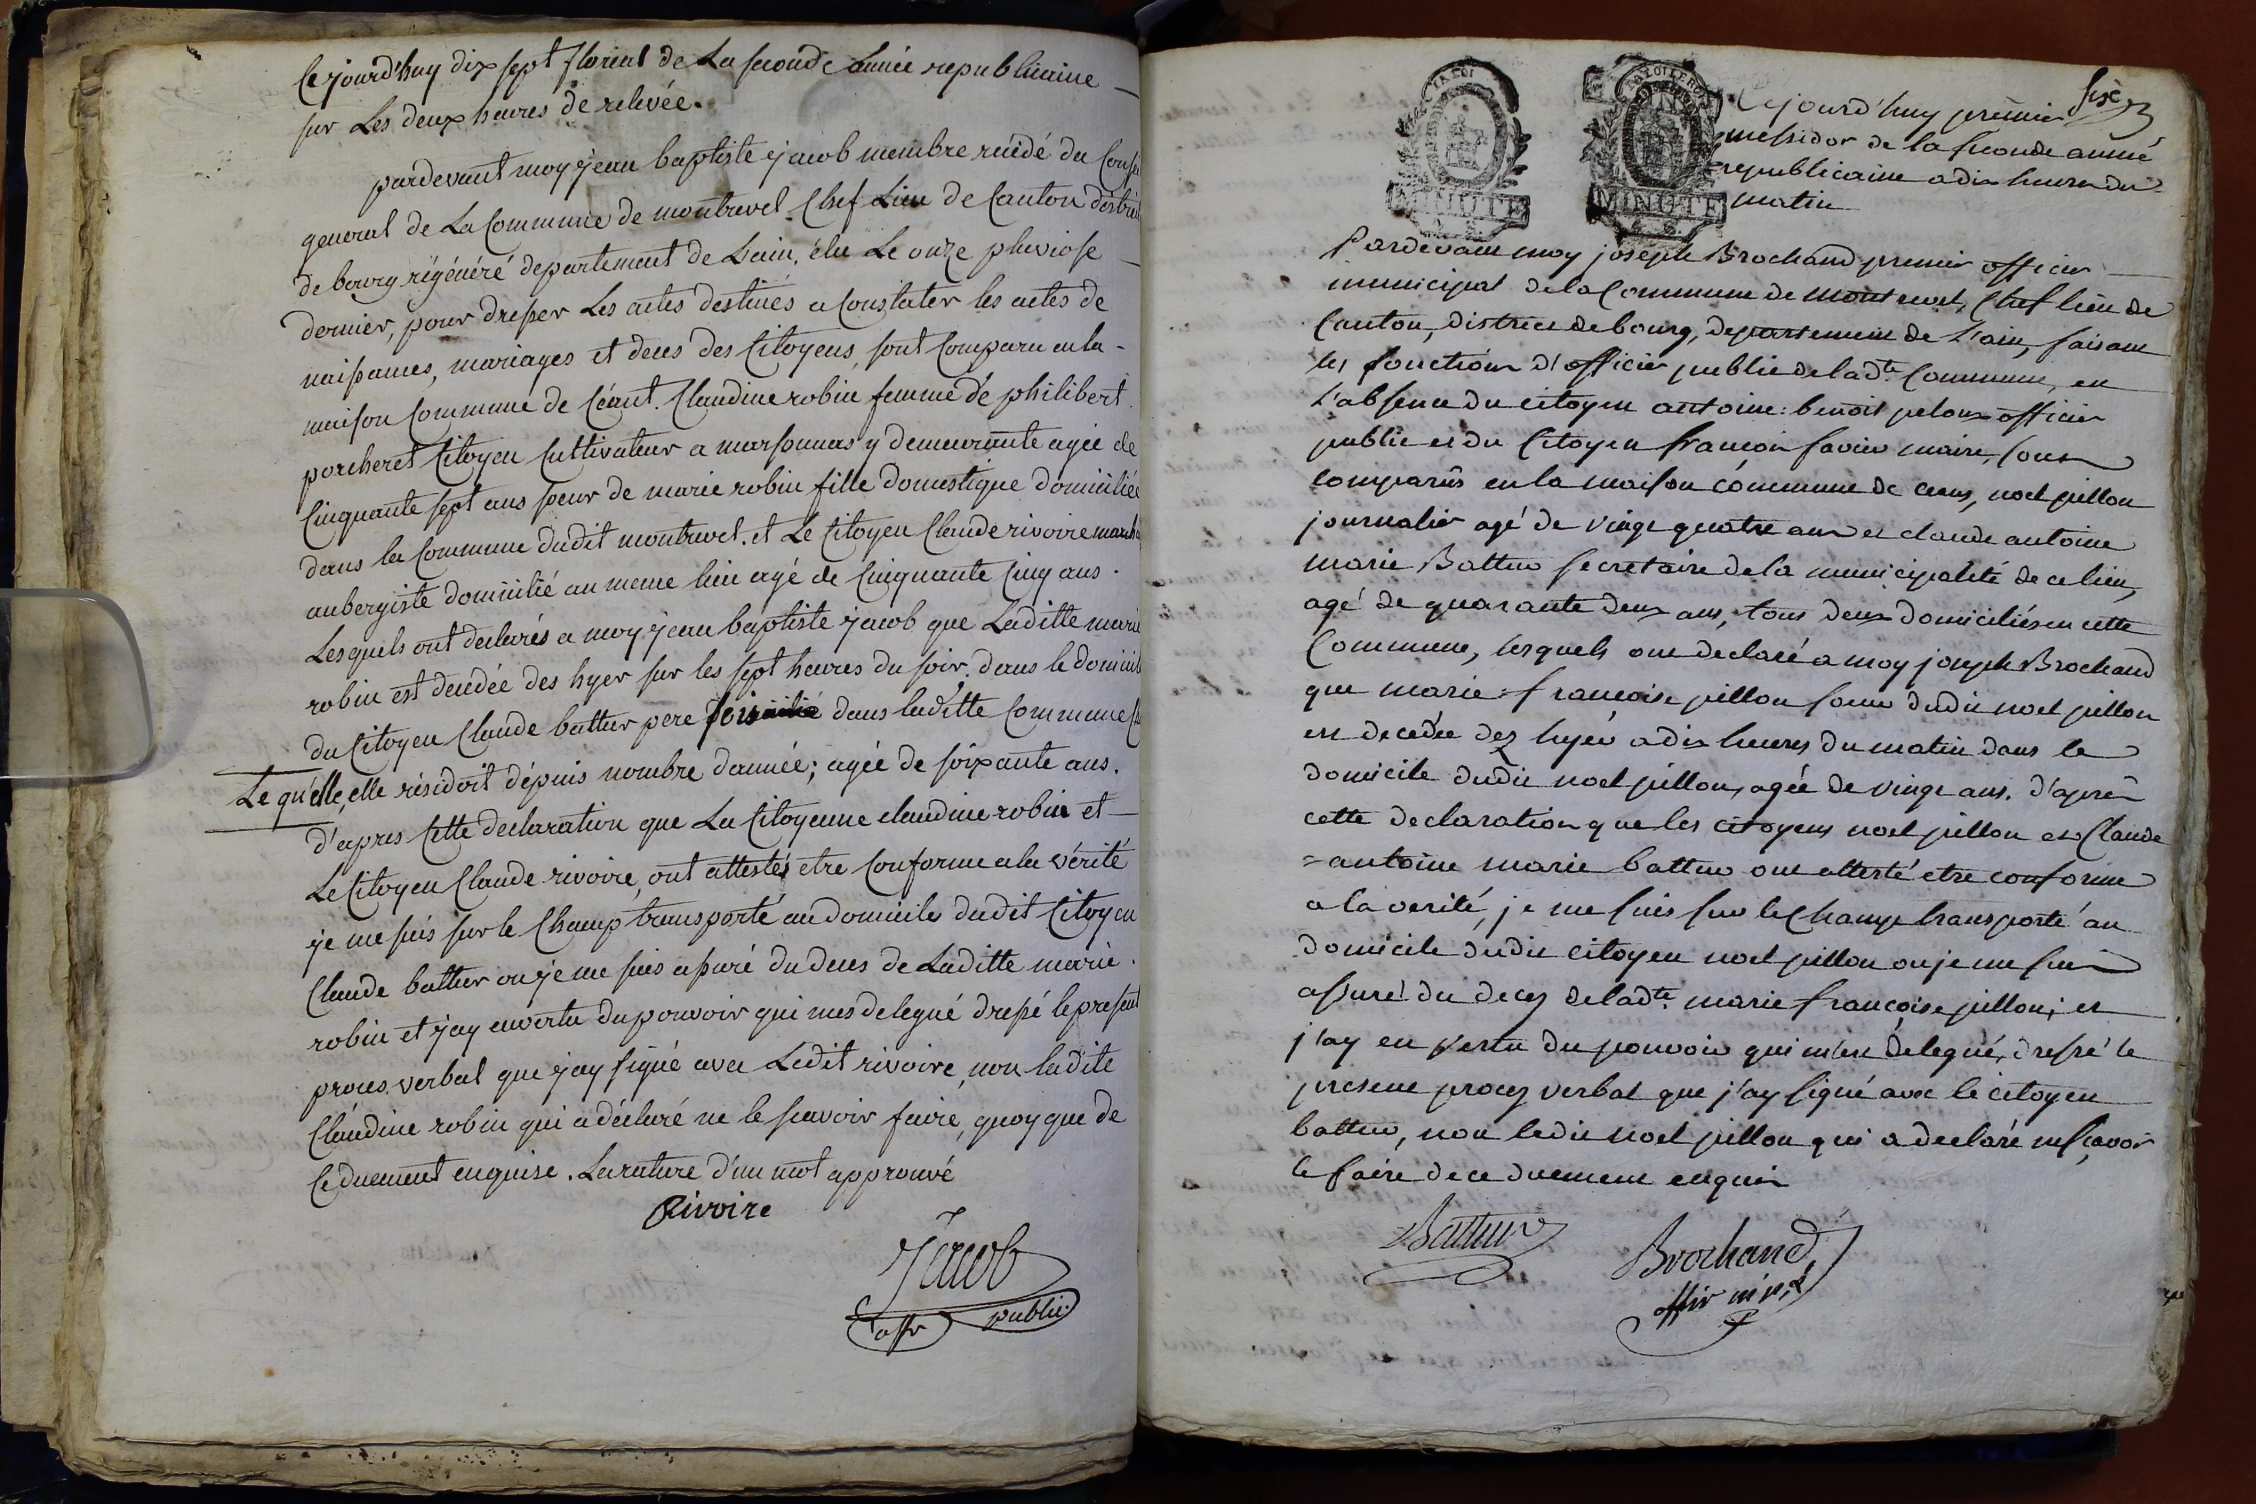 Ce jourd'huy dix sept floreal de La seconde année republicaine
sur Les deux heures de relevée.
pardevant moy jean baptiste jacob membre ruidé du Conse
general de La Commune de montrevel Chef Lieu de Canton destrict
de bourg régénéré departement de Lain, élu Le onze pluviose
dernier, pour dresser Les actes destinés a Constater les actes de
naissances, mariages et deces des Citoyens, sont Comparu en la
maison Commune de Céant. Claudine robin femme de philibert
porcheret Citoyen Cultivateur a marsonnas y demeurante agée de
Cinquante sept ans soeur de marie robin fille domestique domiciliée
dans la Commune dudit montrevel. et Le Citoyen Claude rivoire march
aubergiste domicilié au meme lieu agé de Cinquante Cinq ans.
Lesquels ont declarés a moy jean baptiste jacob que Laditte marie
robin est decedée des hyer sur les sept heures du soir. dans le domicil
du Citoyen Claude battur pere dans laditte Commune
Le quelle, elle résidoit dépuis nombre dannée; agée de soixante ans.
d'apres Cette declaration que La Citoyenne claudine robin et
Le Citoyen Claude rivoire, ont attestés etre Conforme a la vérité
je me suis sur le Champ transporté au domicile dudit Citoyen
Claude battur ou je me suis assuré du deces de Laditte marie
robin et j'ay envertu du pouvoir qui mes delegué dressé le present
proces verbal que j'ay signé avec Ledit rivoire, non ladite
Claudine robin qui a déclaré ne le scavoir faire, quoyque de
Ce duement enquise. La rature d'un mot approuvé
Rivoire
Jacob
offr public
six
Cejourd'huy premier
messidor de la seconde année
republicaine a dix heures du
matin
MINUTE
MINUTE
Pardevant moy joseph Brochand premier officier
municipal de la Commune de Montrevel, Chef lieu de
Canton, district de bourg, departement de L'ain, faisant
les fonctions d'officier public de ladte Commune, en
L'absence du citoyen antoine benoit peloux officier
public et du Citoyen francois favier maire, sont
comparus en la maison commune de ceans, noel pillon
journalier agé de vingt quatre ans et claude antoine
marie Battur secretaire de la municipalité de ce lieu,
agé de quarante deux ans, tous deux domiciliés en cette
Commune, lesquels ont declaré a moy joseph Brochand
que marie francoise pillon soeur dudit noel pillon
est decedée dez hyer a dix heures du matin dans le
domicile dudit noel pillon, agée de vingt ans. d'aprés
cette declaration que les citoyens noel pillon et Claude
= antoine marie battur ont attesté etre conforme
a la verité, je me suis sur le Champ transporté au
domicile dudit citoyen noel pillon ou je me suis
assuré du decez de ladte marie francoise pillon; et
j'ay en vertu du pouvoir qui m'est delegué, dressé le
present procez verbal que j'ay signé avec le citoyen
battur, non ledit noel pillon qui a declaré ne sçavoir
le faire de ce duement enquis
Battur
Brochand
offir mpal